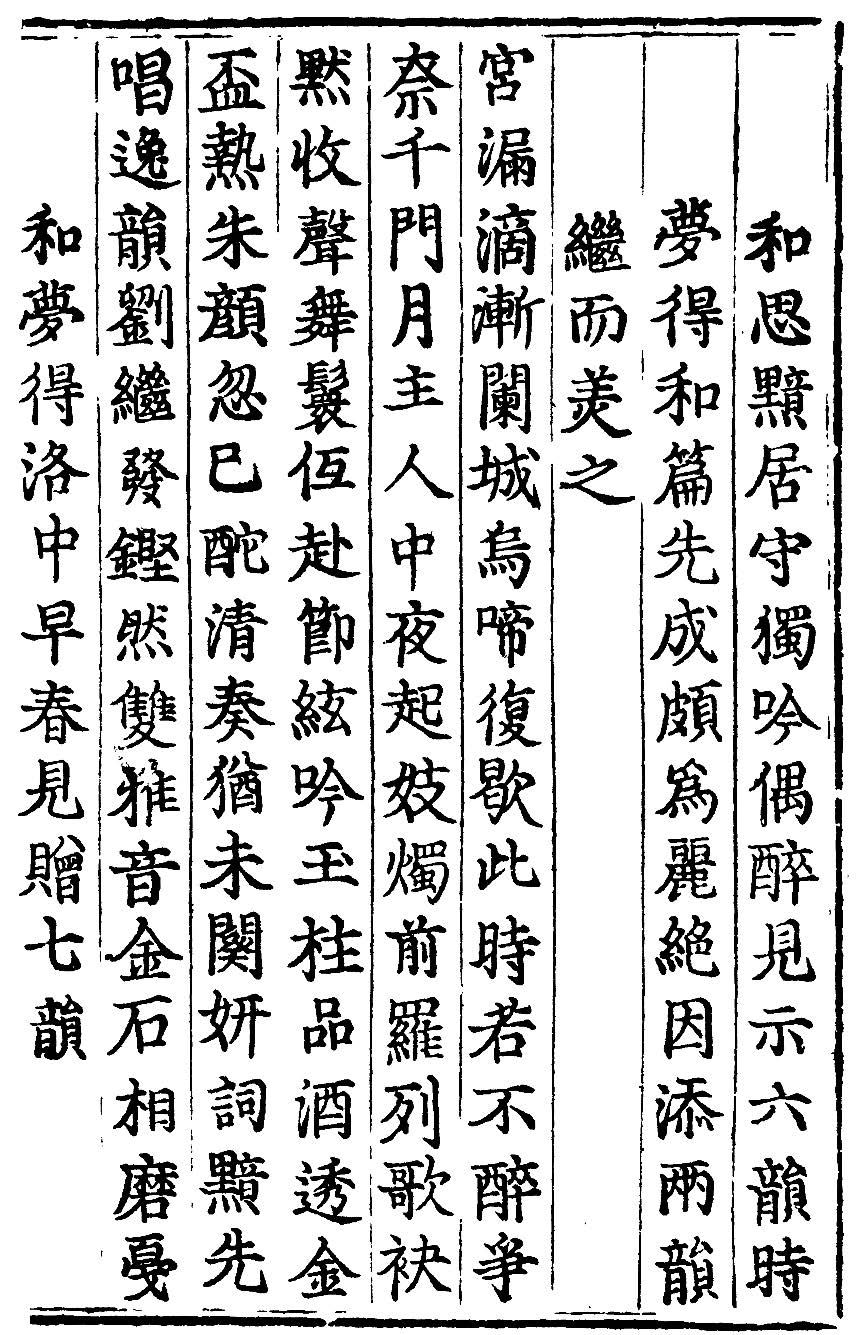 和思黯居守獨吟偶醉見示六韻時
夢得和篇先成頗為麗絕因添兩韻
繼而美之
宮漏滴漸闌城烏啼復歇此時若不醉爭
奈千門月主人中夜起妓燭前羅列歌袂
黙收聲舞鬟低赴節絃吟玉柱品酒透金
盃熱朱顏忽已酡清奏猶未闋妍詞黯先
唱逸韻劉繼發鏗然雙雅音金石相磨戛
和夢得洛中早春見贈七韻